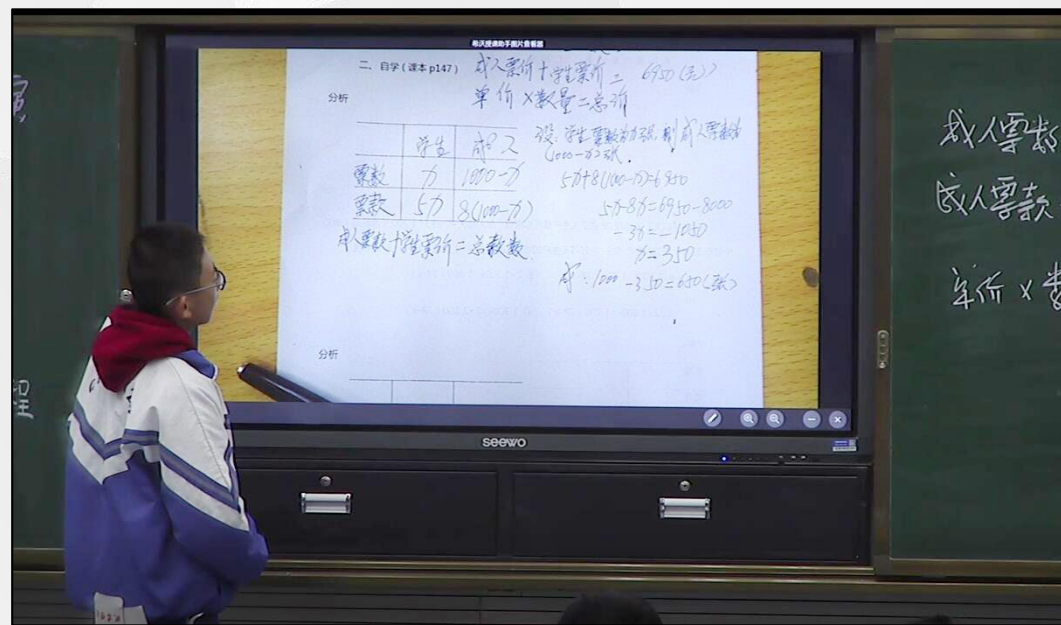 希沃授课助手图片查看器
二、自学(课本 p147) 成人票价+学生票价=6950(元)
分析
单价×数量=总价
学生 成人
票数 x 1000-x
票款 5x 8(1000-x)
成人票款+学生票价=总数数
设:学生票数为x张,则成人票数为
(1000-x)张.
5x+8(1000-x)=6950
5x-8x=6950-8000
-3x=-1050
x=350
成:1000-350=650(张)
分析
seewo
成人票数
成人票款
单价×
程